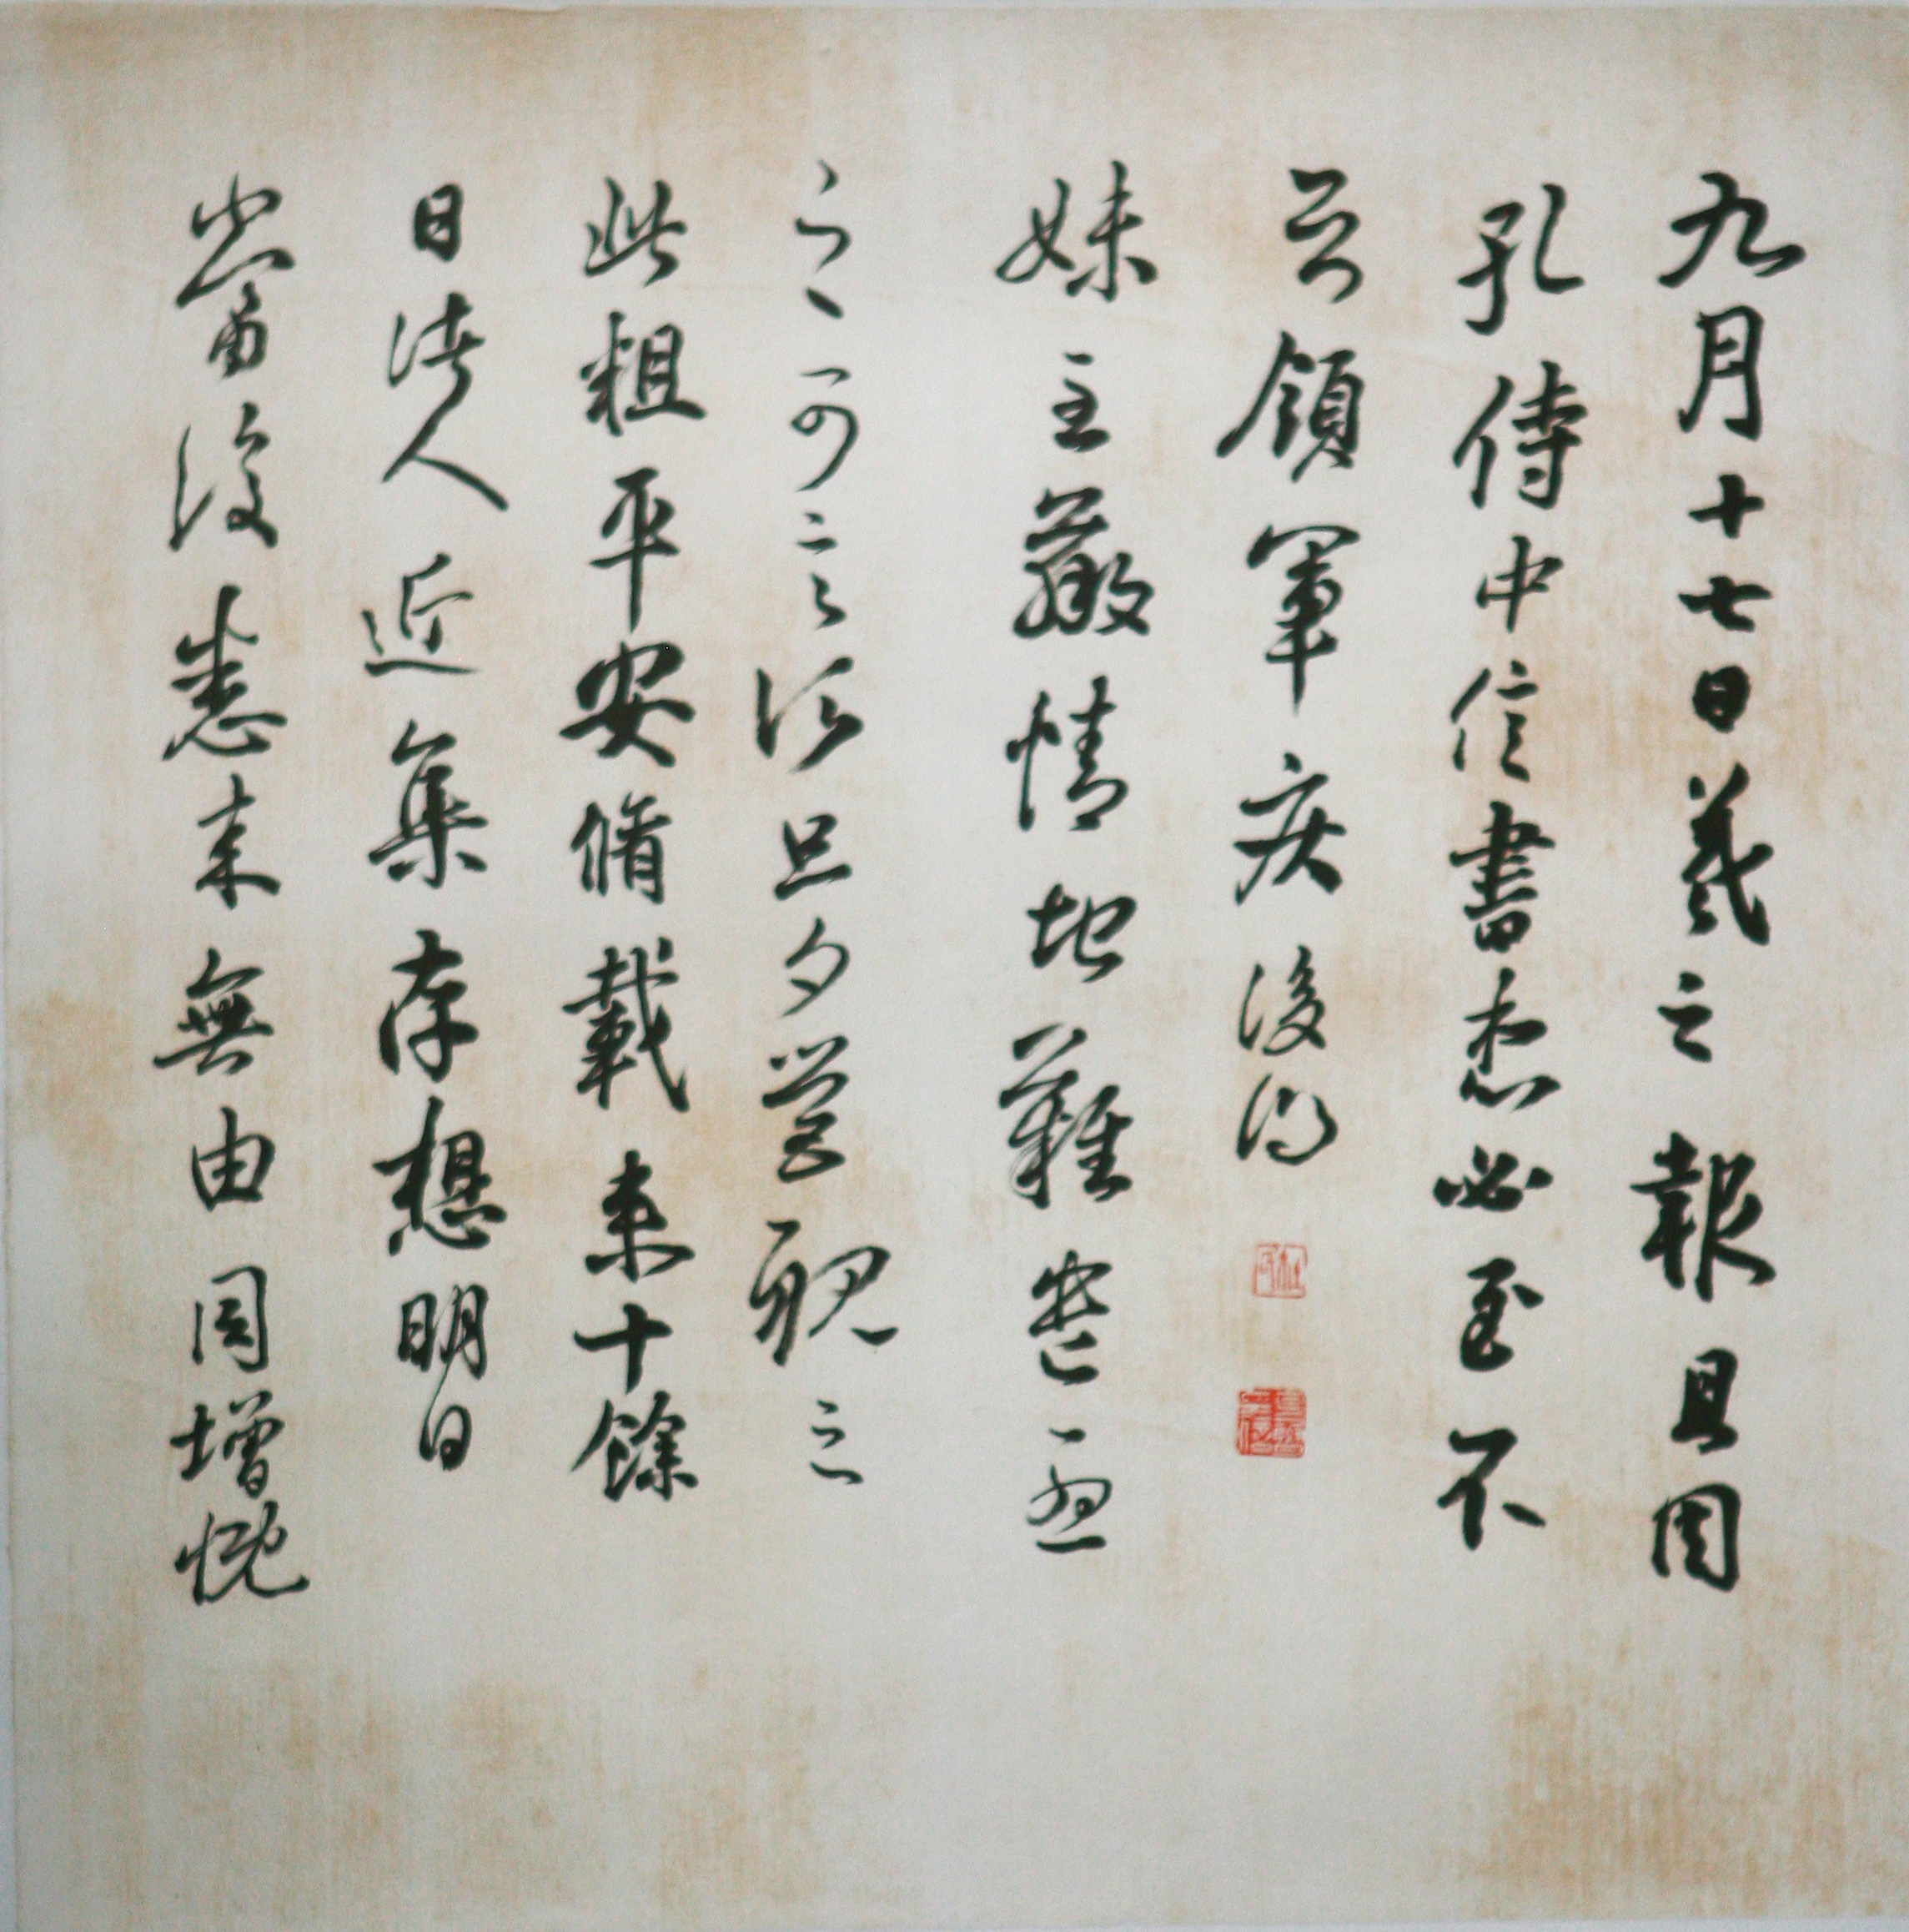 九月十七日羲之報且因
孔侍中信書想必至不
知領軍疾後問
妹至羸情地難遣憂
之可言須旦夕營視之
此粗平安脩載来十餘
日諸人近集存想明日
當復悉来無由同增慨